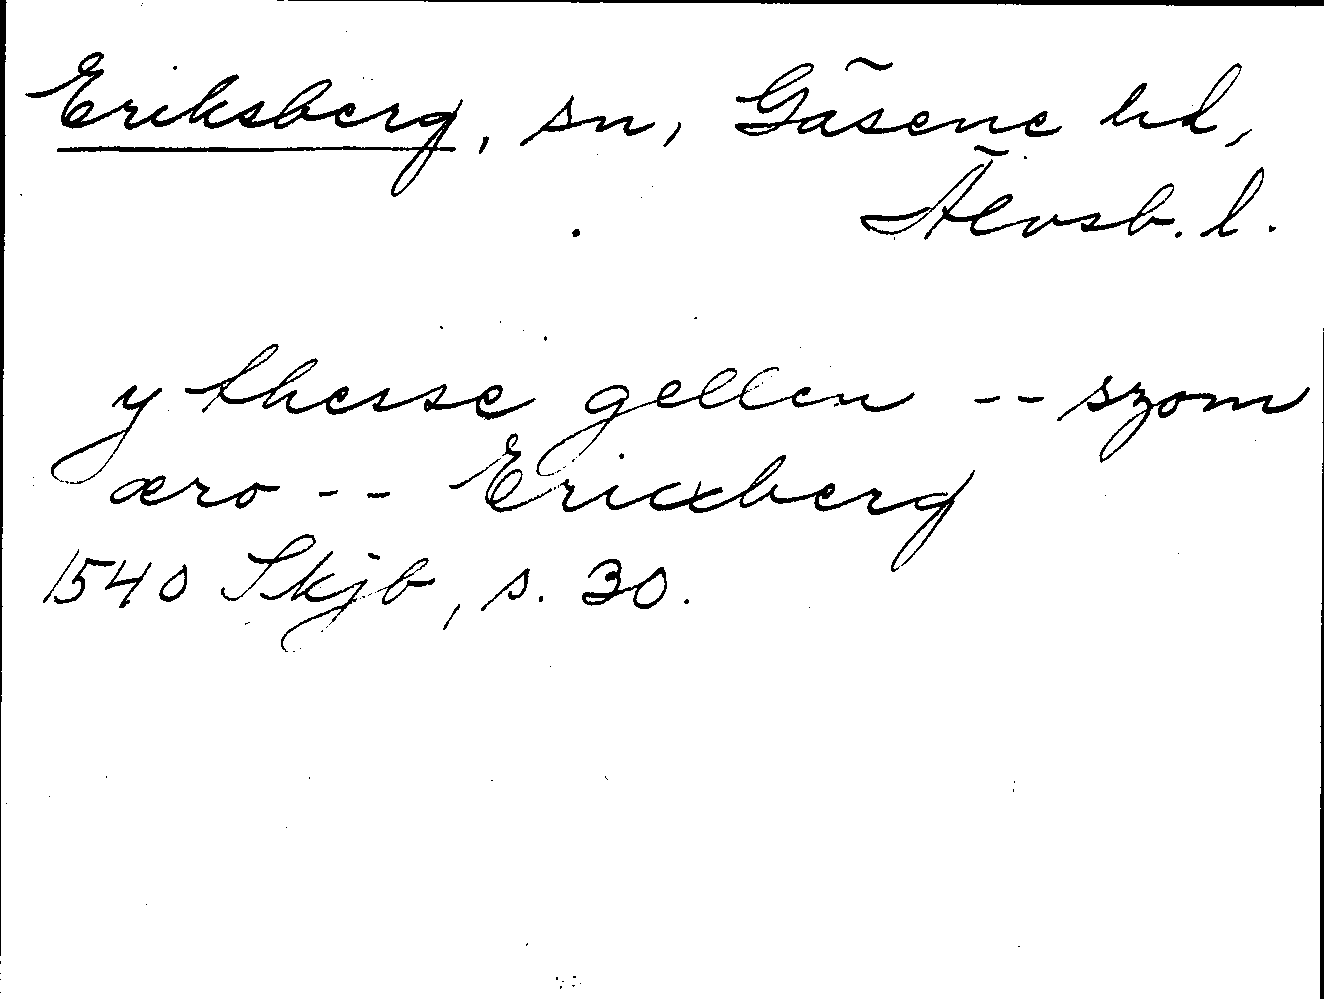 Eriksberg, sn, Gäsene hd,
Älvsb. l.
y thesse gellen -- szom
æro -- Ericxberg
1540 Skjb, s. 30.